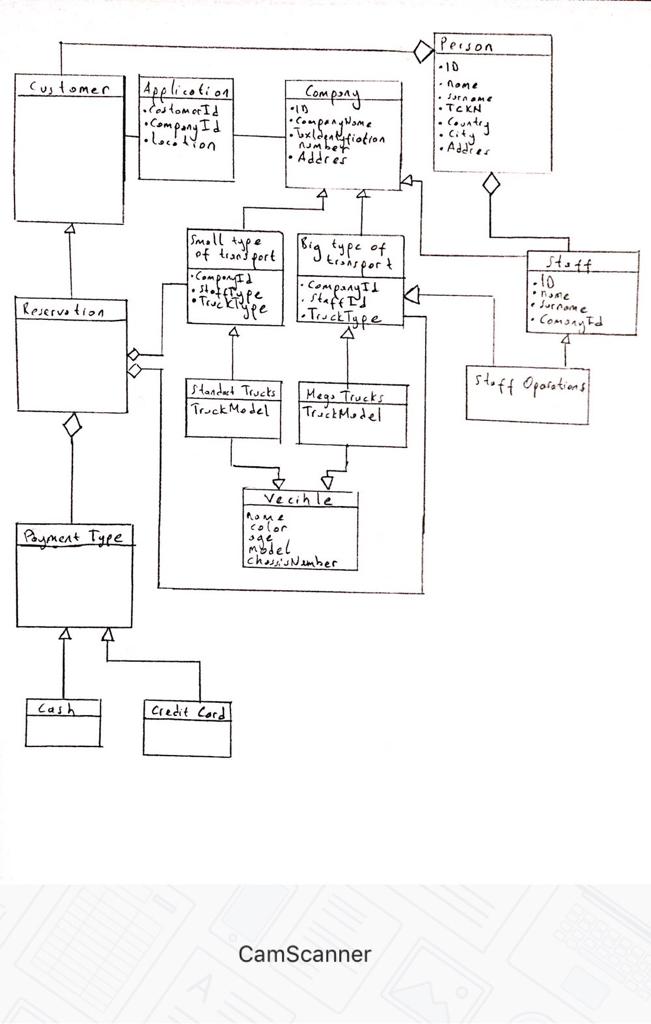 Person
• ID
• name
• surname
• TCKN
• Country
• City
• Addres
Customer
Application
• CustomerId
• CompanyId
• Location
Company
• ID
• CompanyName
• TaxIdentyfiation
number
• Addres
Small type
of transport
• CompanyId
• StaffType
• TruckType
Big type of
transport
• CompanyId
• StaffId
• TruckType
Staff
• ID
• name
• surname
• ComanyId
Reservation
Standart Trucks
TruckModel
Mega Trucks
TruckModel
Staff Oparations
Vecihle
name
color
age
model
chassisNumber
Payment Type
Cash
Credit Card
CamScanner